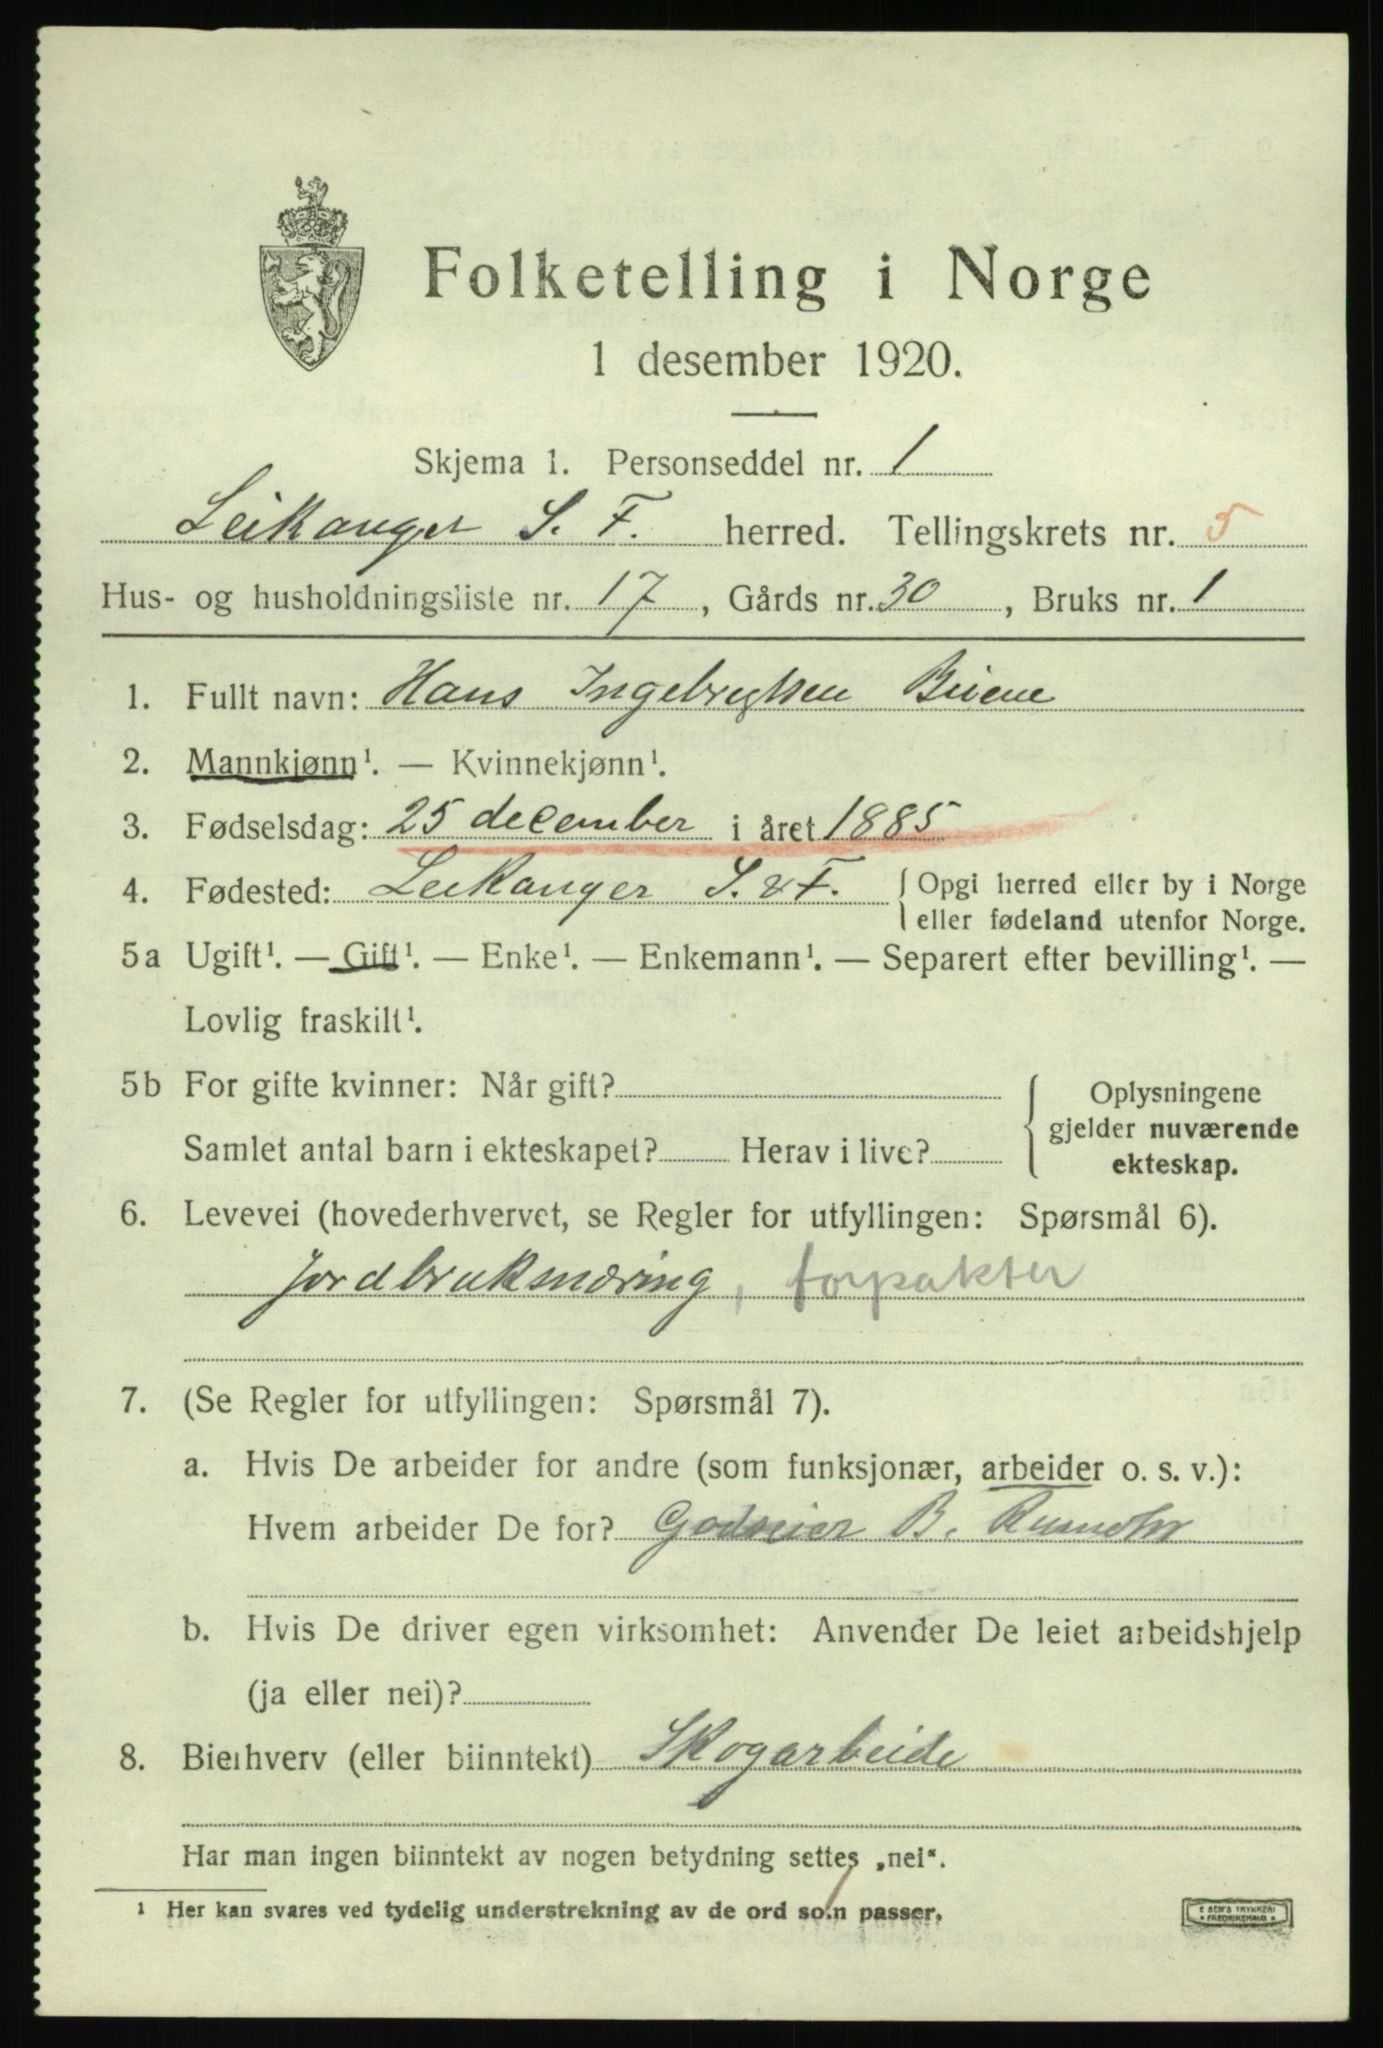 Folketelling i Norge
1 desember 1920.
Skjema 1. Personseddel nr. 1
Leikanger S. F. herred. Tellingskrets nr. 5
Hus- og husholdningsliste nr. 17, Gårds nr. 30, Bruks nr. 1
1. Fullt navn: Hans Ingebrigtsen
2. Mannkjønn¹. — Kvinnekjønn¹.
3. Fødselsdag: 25 december i året 1885
4. Fødested: Leikanger S. & F. { Opgi herred eller by i Norge
eller fødeland utenfor Norge.
5a Ugift¹. — Gift¹. — Enke¹. — Enkemann¹. — Separert efter bevilling¹. —
Lovlig fraskilt¹.
5b For gifte kvinner: Når gift?
Samlet antal barn i ekteskapet? Herav i live?
{ Oplysningene
gjelder nuværende
ekteskap.
6. Levevei (hovederhvervet, se Regler for utfyllingen: Spørsmål 6).
Jordbruksnæring, forpakter
7. (Se Regler for utfyllingen: Spørsmål 7).
a. Hvis De arbeider for andre (som funksjonær, arbeider o. s. v.):
Hvem arbeider De for? Godseier B. Rumohr
b. Hvis De driver egen virksomhet: Anvender De leiet arbeidshjelp
(ja eller nei)?
8. Bierhverv (eller biinntekt) Skogarbeide
Har man ingen biinntekt av nogen betydning settes „nei“.
¹ Her kan svares ved tydelig understrekning av de ord som passer.
E SEM'S TRYKKERI
FREDRIKSHALD